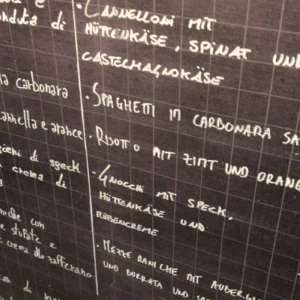 nduta di
carbonara
cannella e arance
di speck
crema di
con
stufate e
crema allo zafferano
di
CANNELLONI MIT
HÜTTENKÄSE, SPINAT UND
CASTELMAGNOKÄSE
· SPAGHETTI IN CARBONARA SA
· RISOTTO MIT ZIMT UND ORANG
· GNOCCHI MIT SPECK,
HÜTTENKÄSE UND
RÜBENCREME
· MEZZE MANICHE MIT AUBERGI
UND BURRATA UND